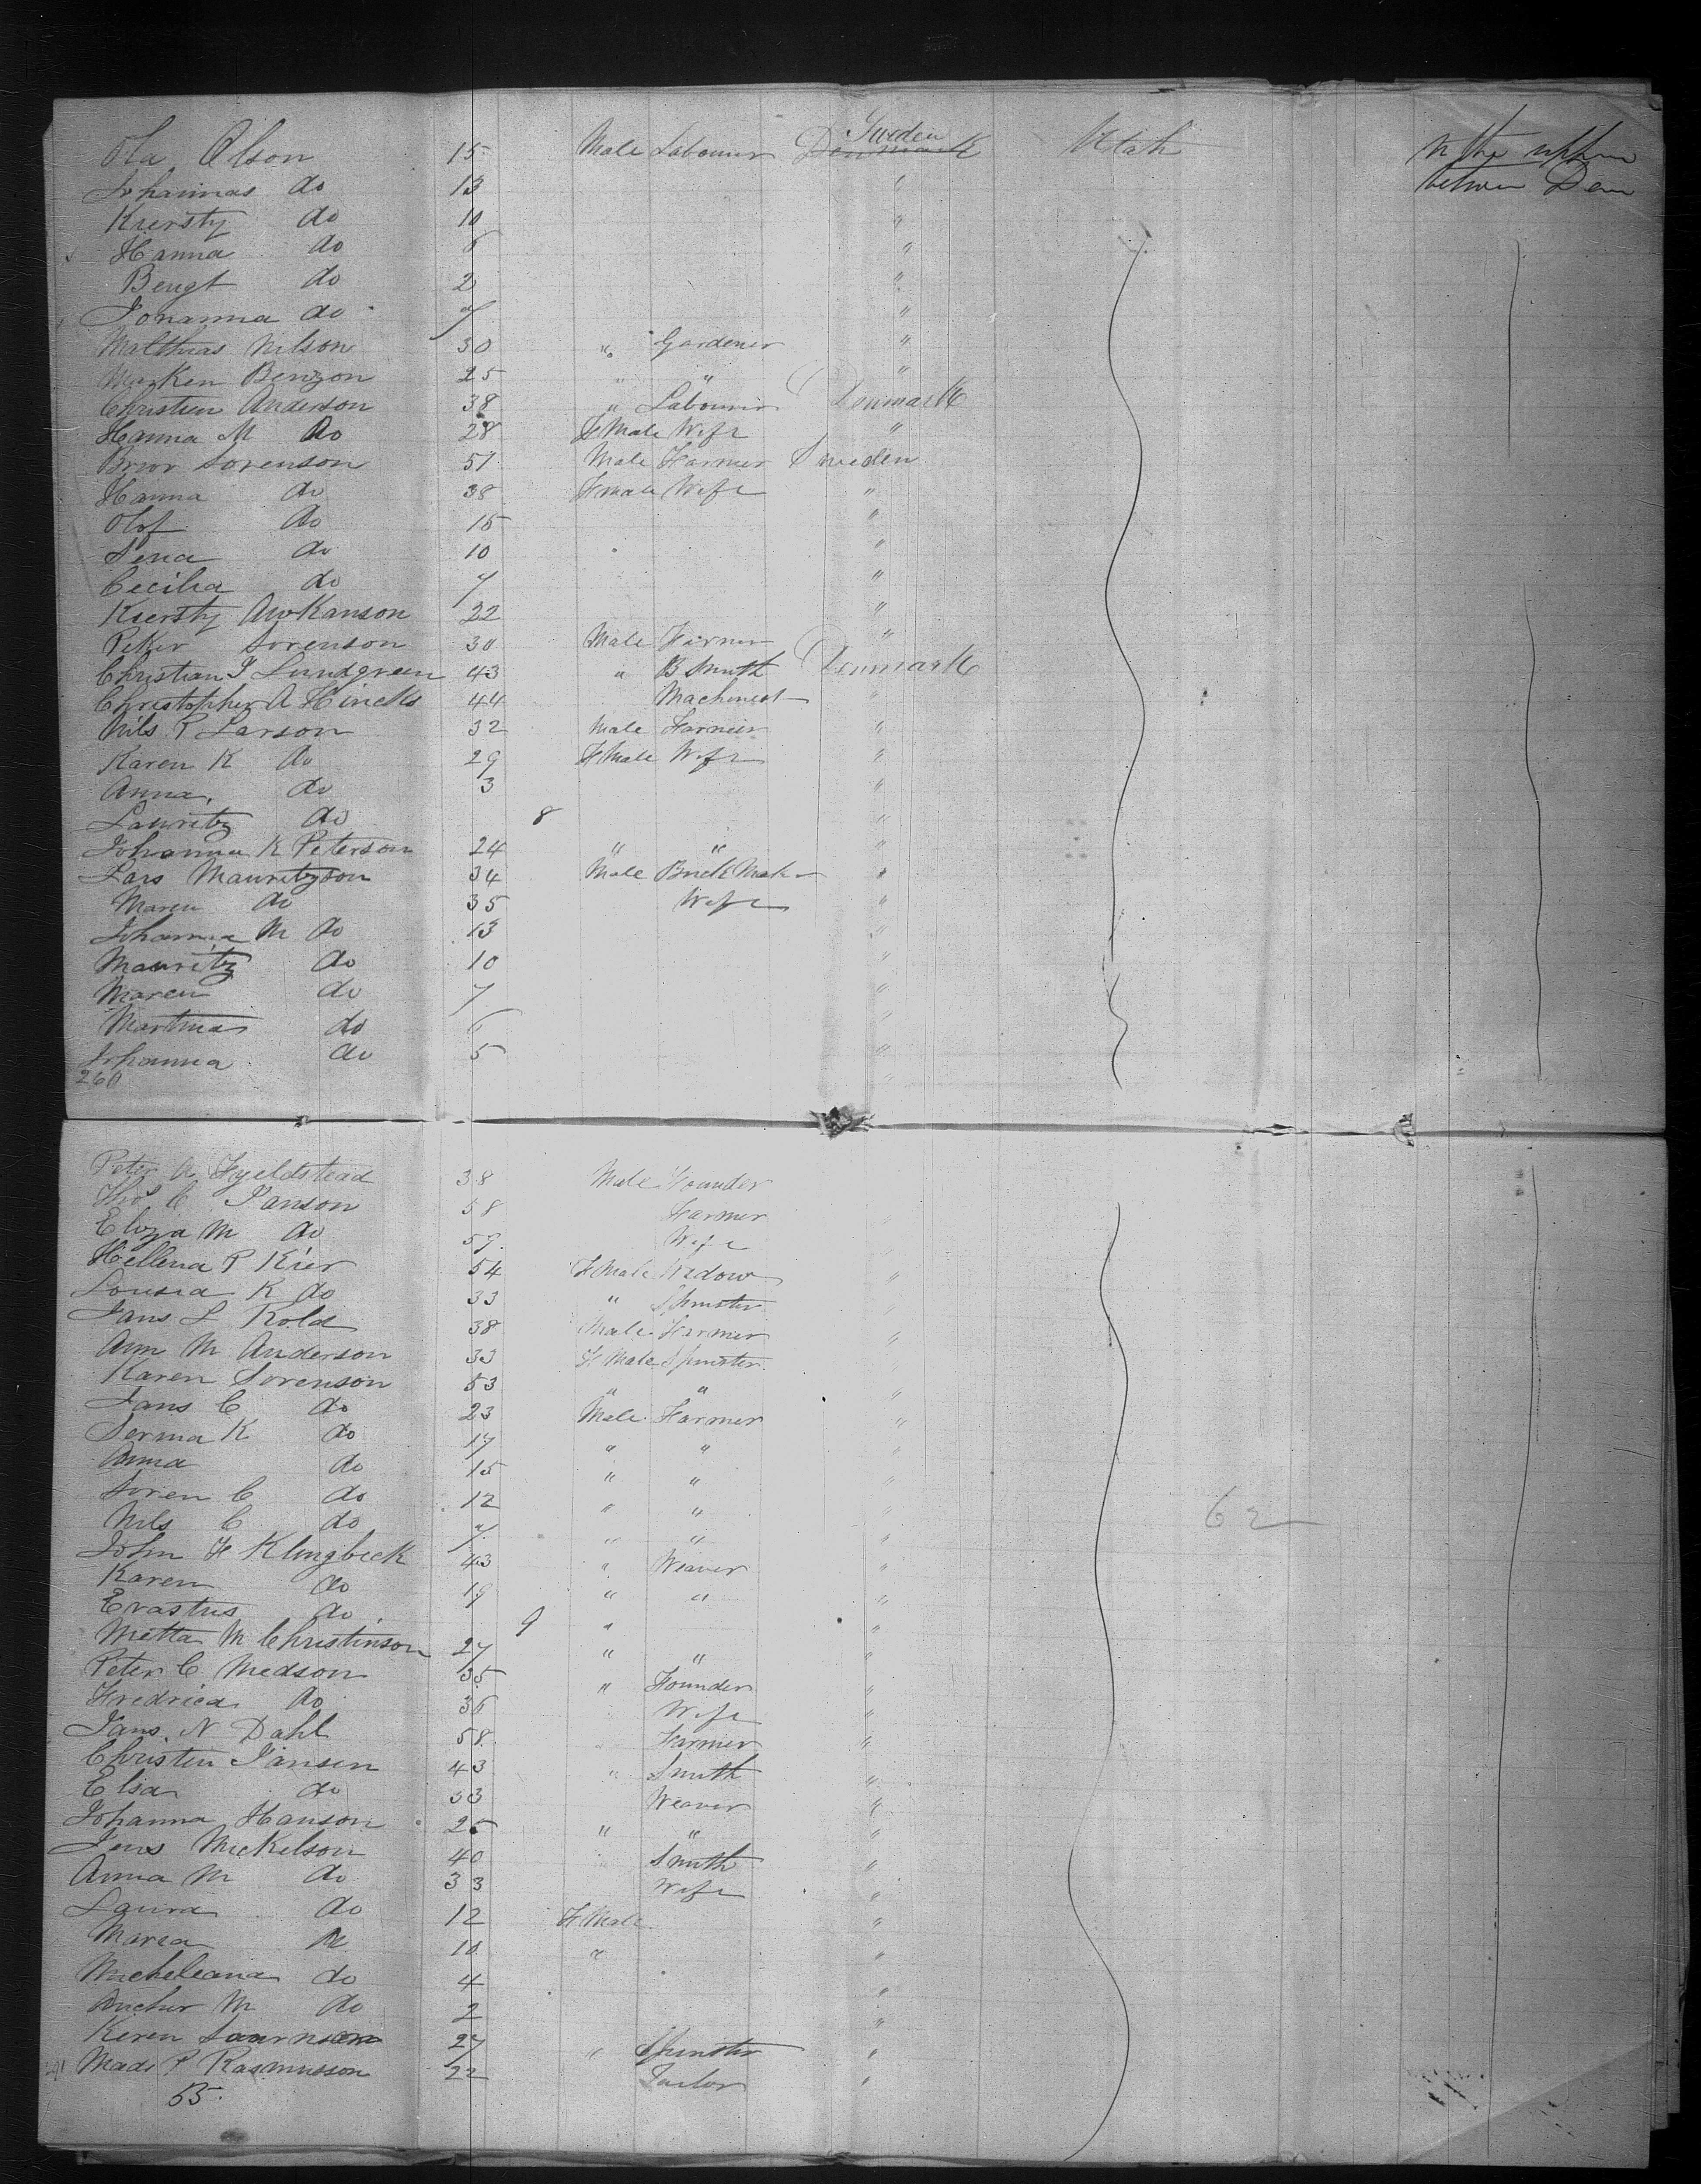 Ola Olson 15 Male Labourer Sweden Denmark Utah In the upper
Johannas do 13 " between Dem
Kiersty do 10 "
Hanna do 6 "
Bengt do 2 "
Johanna do 7 "
Malthias Nilson 30 " Gardener "
Marken Benzon 25 " " "
Christien Anderson 38 " Labourer Denmark
Hanna M Do 28 F Male Wife "
Brior Sorenson 51 Male Farmer Sweden
Hanna do 38 F male Wife "
Olof do 15 "
Sena do 10 "
Cecilia do 7 "
Kiersty Awkanson 22 "
Peter Sorenson 30 Male Farmer "
Christian J Lundgreen 43 " B Smith Denmark
Christopher A Hincks 44 Machinest "
Nils P Larson 32 Male Farmer "
Karen K do 29 F Male Wife "
Anna do 3 "
Lauritz do 8 "
Johanna K Peterson 24 " " "
Lars Mauritzson 34 Male Brick Maker "
Maren do 35 Wife "
Johanna M do 13 "
Mauritz do 10 "
Maren do 7 "
Martinas do 6 "
Johanna do 5 "
260 "
Peter A Fyeldstead 38 Male Founder
Thos C Janson 58 Farmer "
Eliza M do 59 Wife "
Hellena P Kier 54 F Male Widow "
Lousia K do 33 " Spinster "
Jans L Kold 38 Male Farmer "
Ann M Anderson 33 F Male Spinster "
Karen Sorenson 53 " " "
Jans C do 23 Male Farmer "
Serma K do 17 " " "
Anna do 15 " " "
Soren C do 12 " " 62
Nils C do 7 " " "
John F Klingbeck 43 " Weaver "
Karen do 19 " " "
Erastus do 9 " "
Metta M Christinson 27 " " "
Peter C Medson 35 " Founder "
Fredrica do 36 Wife "
Jans N Dahl 58 Farmer "
Christin Jansen 43 " Smith "
Elsa do 33 Weaver "
Johanna Hanson 25 " " "
Jens Mickelson 40 Smith "
Anna M do 33 Wife "
Laura do 12 F Male "
Maria do 10 " "
Micheleana do 4 "
M do 2 "
Keren 27 " Spinster "
Mads P Rasmusson 22 Tailor "
B